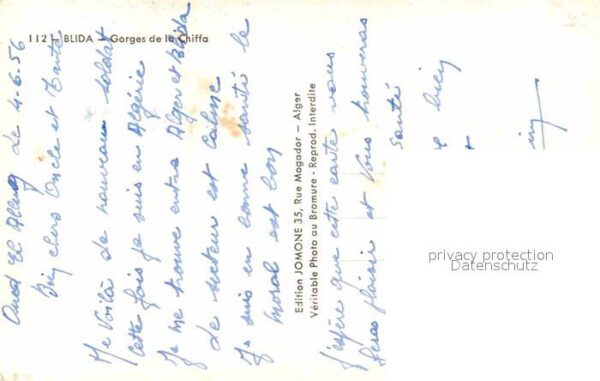 112 - BLIDA - Gorges de la Chiffa
Oued El Alleug le 4-6-56
Bien chers Oncle et Tante
Me Voilà de nouveau soldat
cette fois je suis en Algérie
Je me trouve entre Alger et Blida
le secteur est calme
Je suis en bonne santé le
moral est bon
Edition JOMONE 35, Rue Mogador - Alger
Véritable Photo au Bromure - Reprod. Interdite
J'espère que cette carte vous
feras plaisir et vous trouveras
santé
privacy protection
Datenschutz